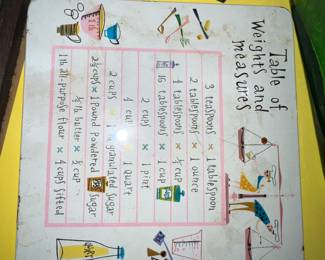 Table of
Weights and
measures
3 teaspoons × 1 tablespoon
2 tablespoons × 1 ounce
4 tablespoons × ¼ cup
16 tablespoons × 1 cup
2 cups × 1 pint
4 cups × 1 quart
2 cups granulated sugar
2½ cups × 1 pound powdered sugar
¼ lb butter × ½ cup
1 lb all-purpose flour × 4 cups sifted